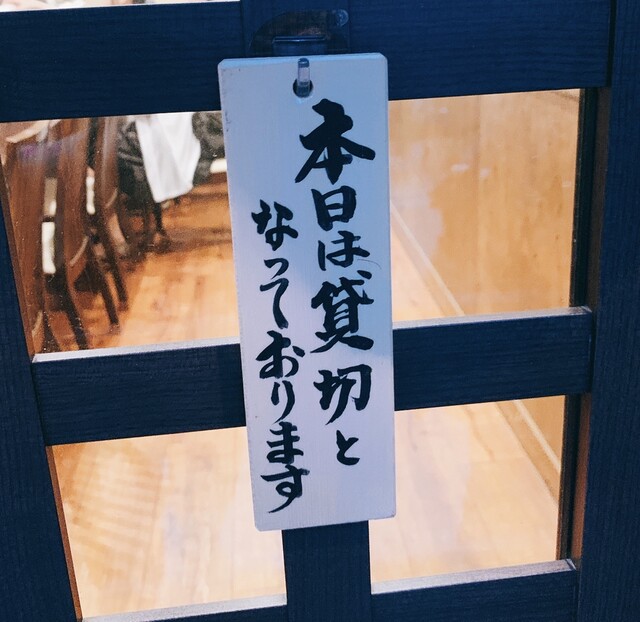 本日は貸切と
なっております